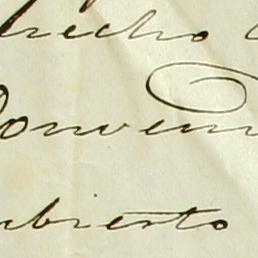 recho
Conveni
abierto